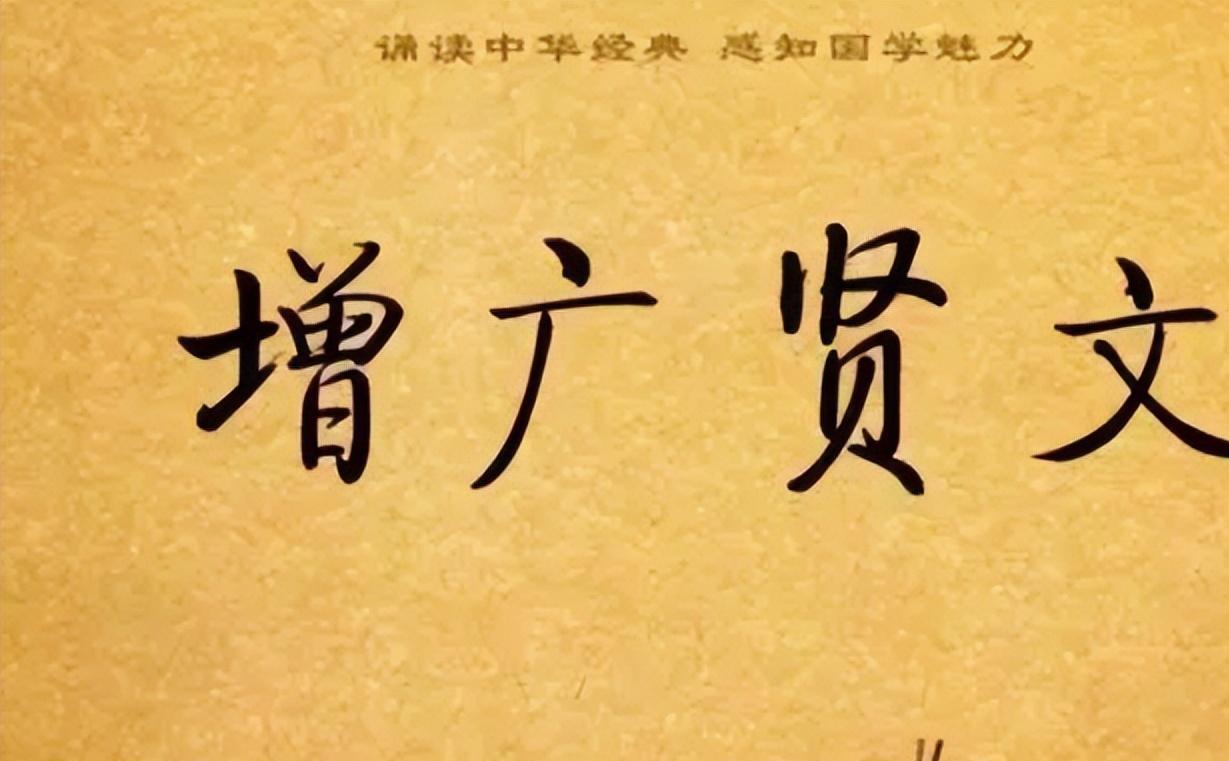 诵读中华经典 感知国学魅力
增广贤文